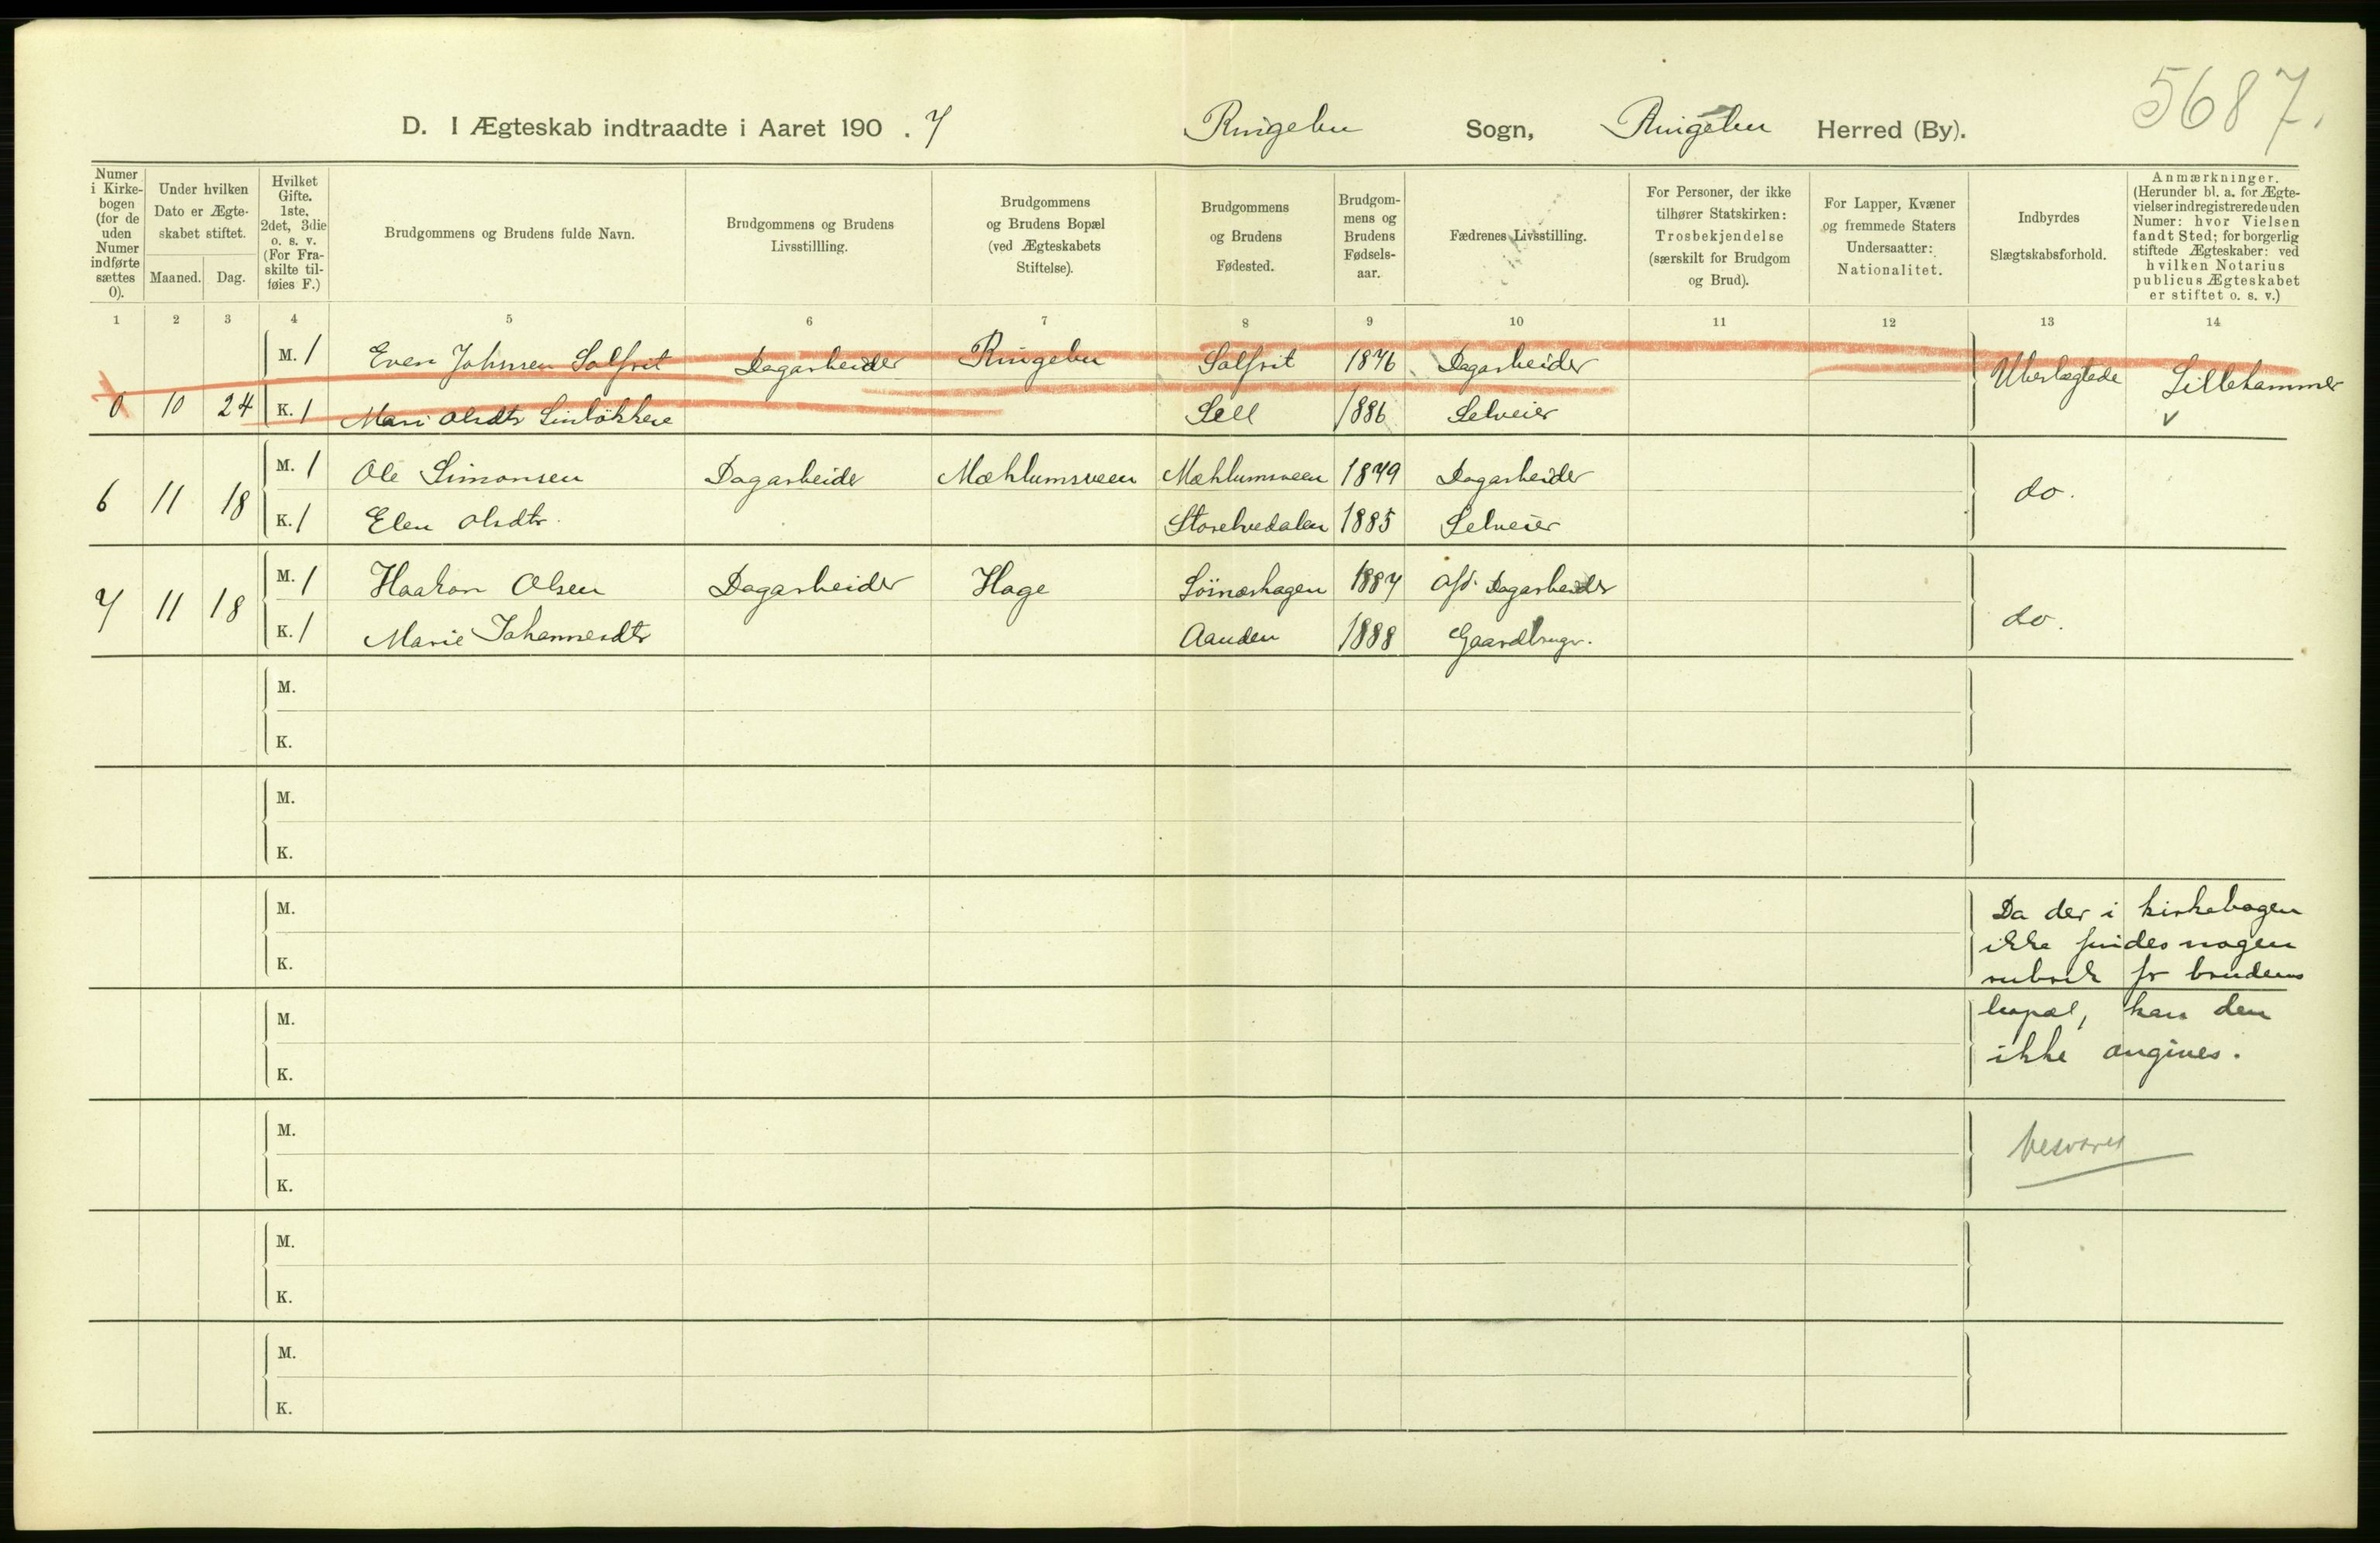 5687.
D. I Ægteskab indtraadte i Aaret 190 . 7 Ringebu Sogn, Ringebu Herred (By).
Numer i Kirke-bogen (for de uden Numer indførte sættes 0). Under hvilken Dato er Ægte-skabet stiftet. Maaned. Dag. Hvilket Gifte. 1ste, 2det, 3die o. s. v. (For Fra-skilte til-føies F.) Brudgommens og Brudens fulde Navn. Brudgommens og Brudens Livsstillling. Brudgommens og Brudens Bopæl (ved Ægteskabets Stiftelse). Brudgommens og Brudens Fødested. Brudgom-mens og Brudens Fødsels-aar. Fædrenes Livsstilling. For Personer, der ikke tilhører Statskirken: Trosbekjendelse (særskilt for Brudgom og Brud). For Lapper, Kvæner og fremmede Staters Undersaatter: Nationalitet. Indbyrdes Slægtskabsforhold. Anmærkninger. (Herunder bl. a. for Ægte-vielser indregistrerede uden Numer: hvor Vielsen fandt Sted; for borgerlig stiftede Ægteskaber: ved hvilken Notarius publicus Ægteskabet er stiftet o. s. v.)
1 2 3 4 5 6 7 8 9 10 11 12 13 14
M. 1 Even Johnsen Solfsit Dagarbeider Ringebu Solfsit 1876 Dagarbeider Ubeslægtede Lillehammer
0 10 24 K. 1 Mari Olsdtr Linløkken Sell 1886 Selveier v
M. 1 Ole Simonsen Dagarbeide Mæhlumsveen Mæhlumsveen 1879 Dagarbeider do.
6 11 18 K. 1 Elen Olsdtr. Storelvedalen 1885 Selveier
M. 1 Haakon Olsen Dagarbeider Hage 1887 Afd. Dagarbeider do.
7 11 18 K. 1 Marie Johannesdtr Aanden 1888 Gaardbruger.
M.
K.
M.
K.
M. Da der i kirkebogen
ikke findes nogen
K. rubrik for brudens
M. bopæl, kan den
ikke angives.
K.
M. besvares
K.
M.
K.
M.
K.